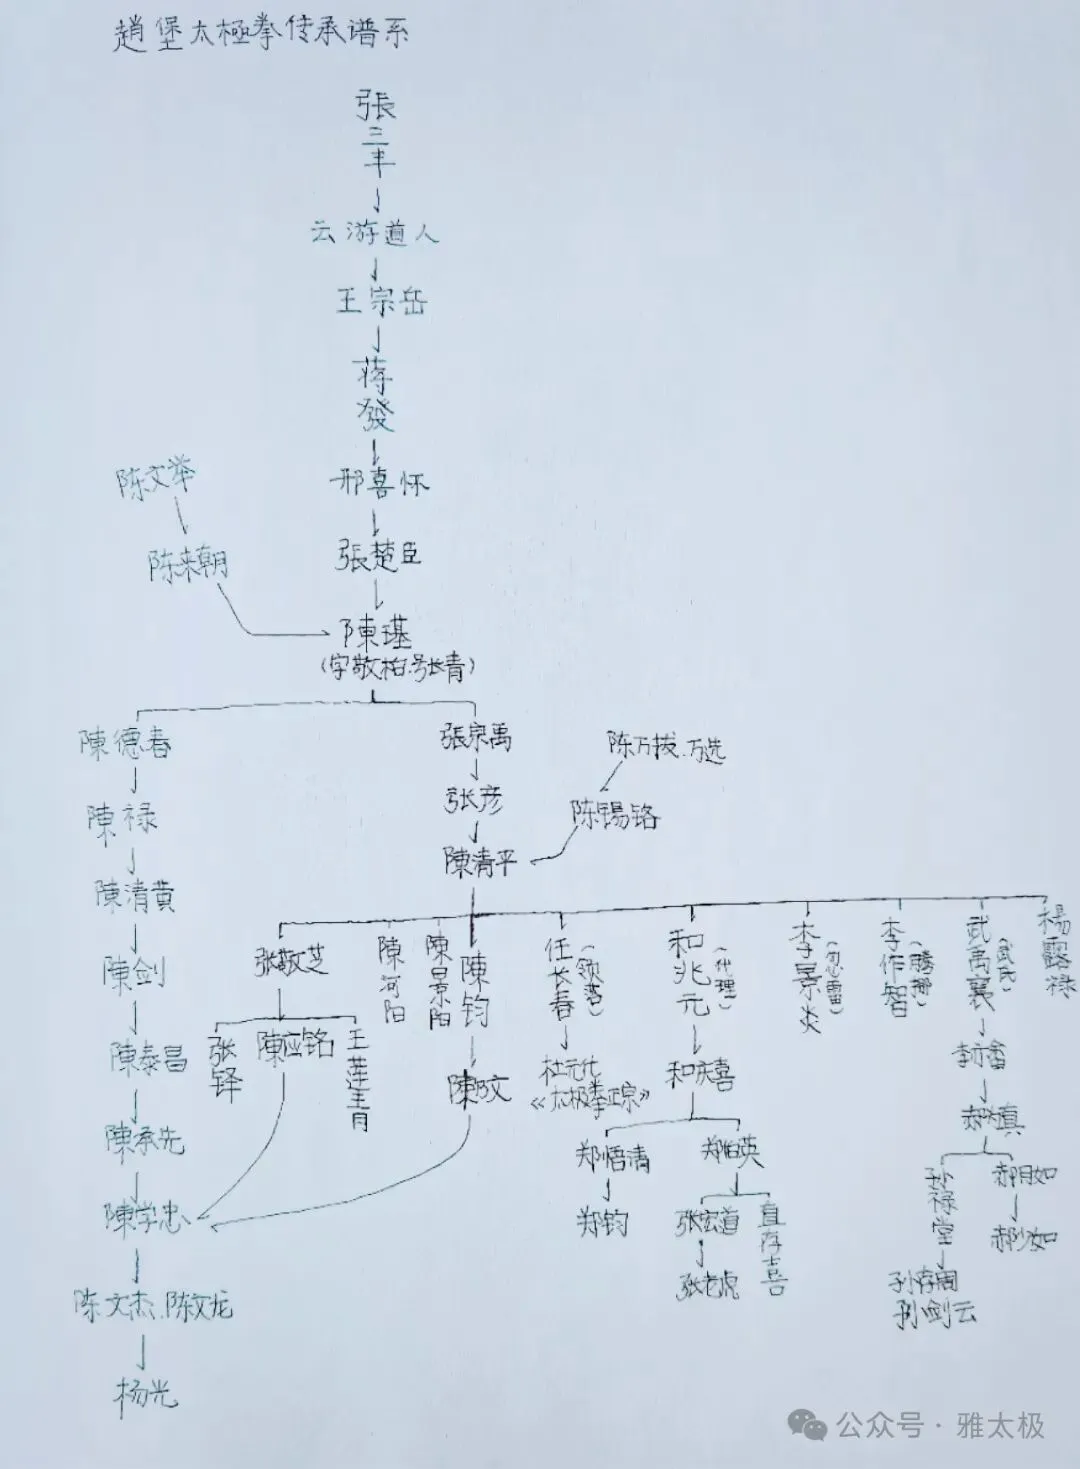 趙堡太極拳传承谱系
張三丰
云游道人
王宗岳
蒋發
邢喜怀
陈文举
張楚臣
陈来朝
陳璂
(字敬柏.号长青)
陳德春
張宗禹
陈万拔.万选
張彦
陈锡铬
陳禄
陳清平
陳清黄
张敬芝
陳河阳
陳景阳
陳钧
任长春
(领落)
和兆元
(代理)
李景炎
(忽雷)
李作智
(腾挪)
武禹襄
(武氏)
楊露禄
陳剑
张铎
陳应铭
王莲青
陳汶
杜元化
《太极拳正宗》
和庆喜
李亦畬
陳泰昌
郝为真
陳承先
郑悟清
郑伯英
孙禄堂
郝月如
陳学忠
郑钧
张宏道
直存喜
郝少如
张老虎
孙存周
孙剑云
陈文杰.陈文龙
杨光
公众号·雅太极